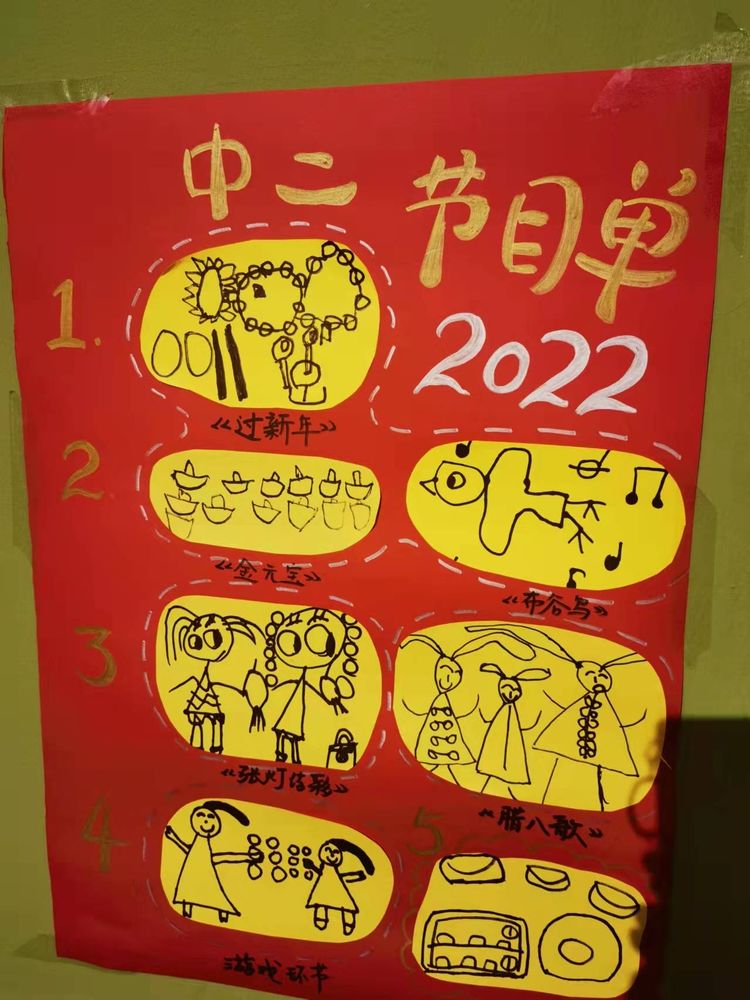 中二 节目单
2022
1.
《过新年》
2.
《金元宝》
《布谷鸟》
3
《张灯结彩》
《腊八歌》
4
游戏环节
5